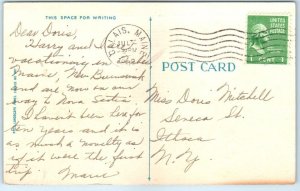 THIS SPACE FOR WRITING
Dear Doris,
Harry and I
vacationing in
Maine, New Brunswick
and are now on our
way to Nova Scotia.
I haven't been here for
ten years and it is
as much a novelty as
if it were the first
trip.
Marie
CALAIS, MAINE
JUL
1 CENT 1
POST CARD
Miss Doris Mitchell
Seneca St.
Ithaca
N.Y.